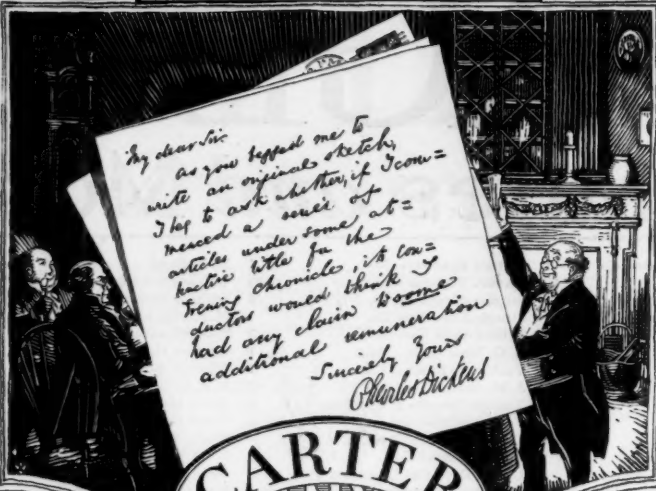 My dear Sir
as you begged me to
write an original sketch,
I beg to ask whether, if I com=
menced a series of
articles under some at=
tractive title for the
Evening Chronicle its con=
ductors would think I
had any claim to some
additional remuneration
Sincerely Yours
Charles Dickens
CARTER